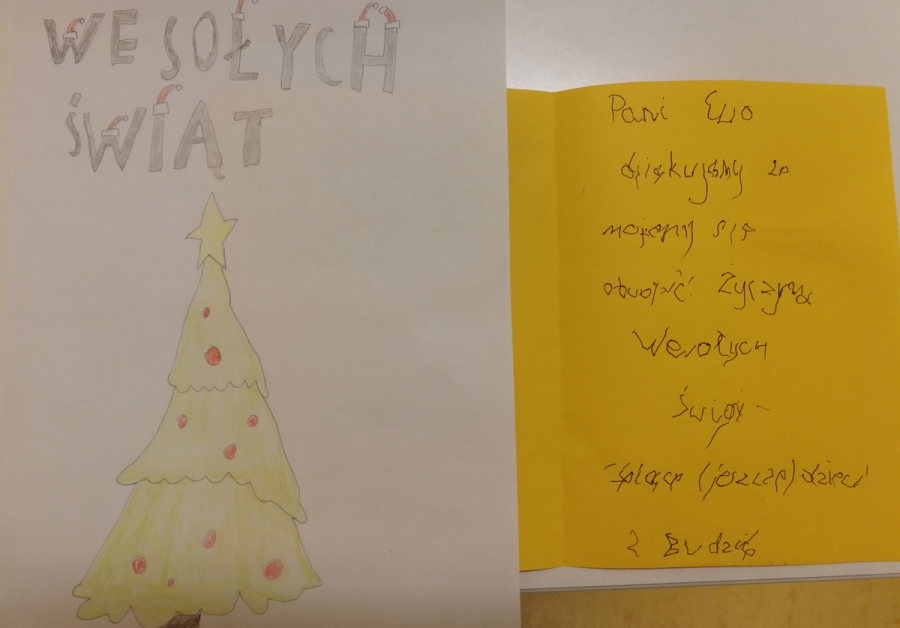 WESOŁYCH
ŚWIĄT
Pani Ewo
dziękujemy za
możemy się
Życzymy
Wesołych
Świąt -
śpiące (jeszcze) dzieci
z